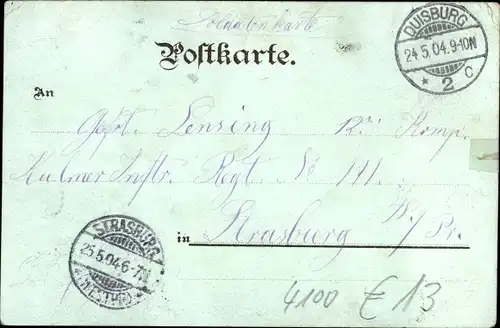 Soldatenkarte
Postkarte.
DUISBURG
24.5.04.9-10N
* 2 c
An
Gefr. Lensing 12. Komp.
Kulmer Inftr. Regt. No 141.
in Strasburg W/Pr.
STRASBURG
25.5.04.6-7N
(WESTPR)
4100 € 13